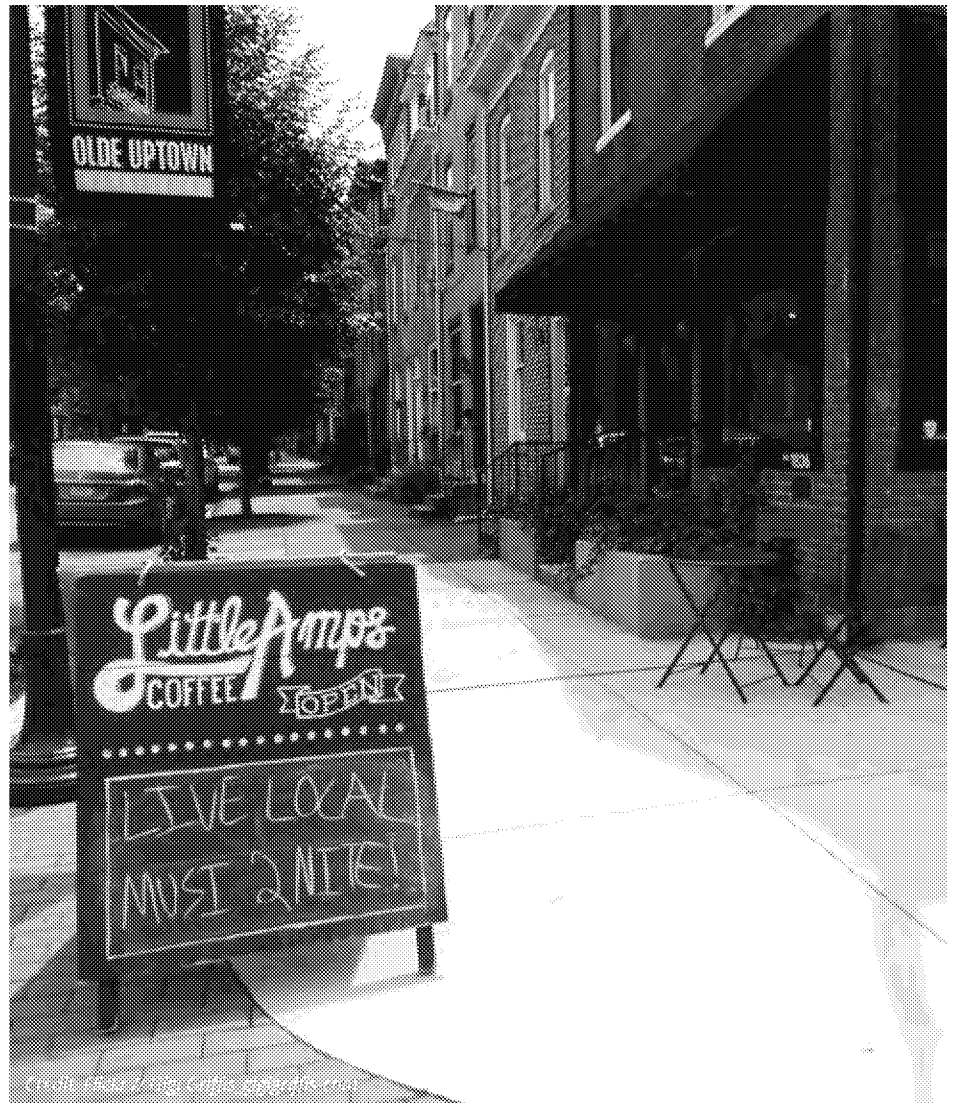 OLDE UPTOWN
Little Amps
COFFEE
OPEN
LIVE LOCAL
MUSI 2 NITE!